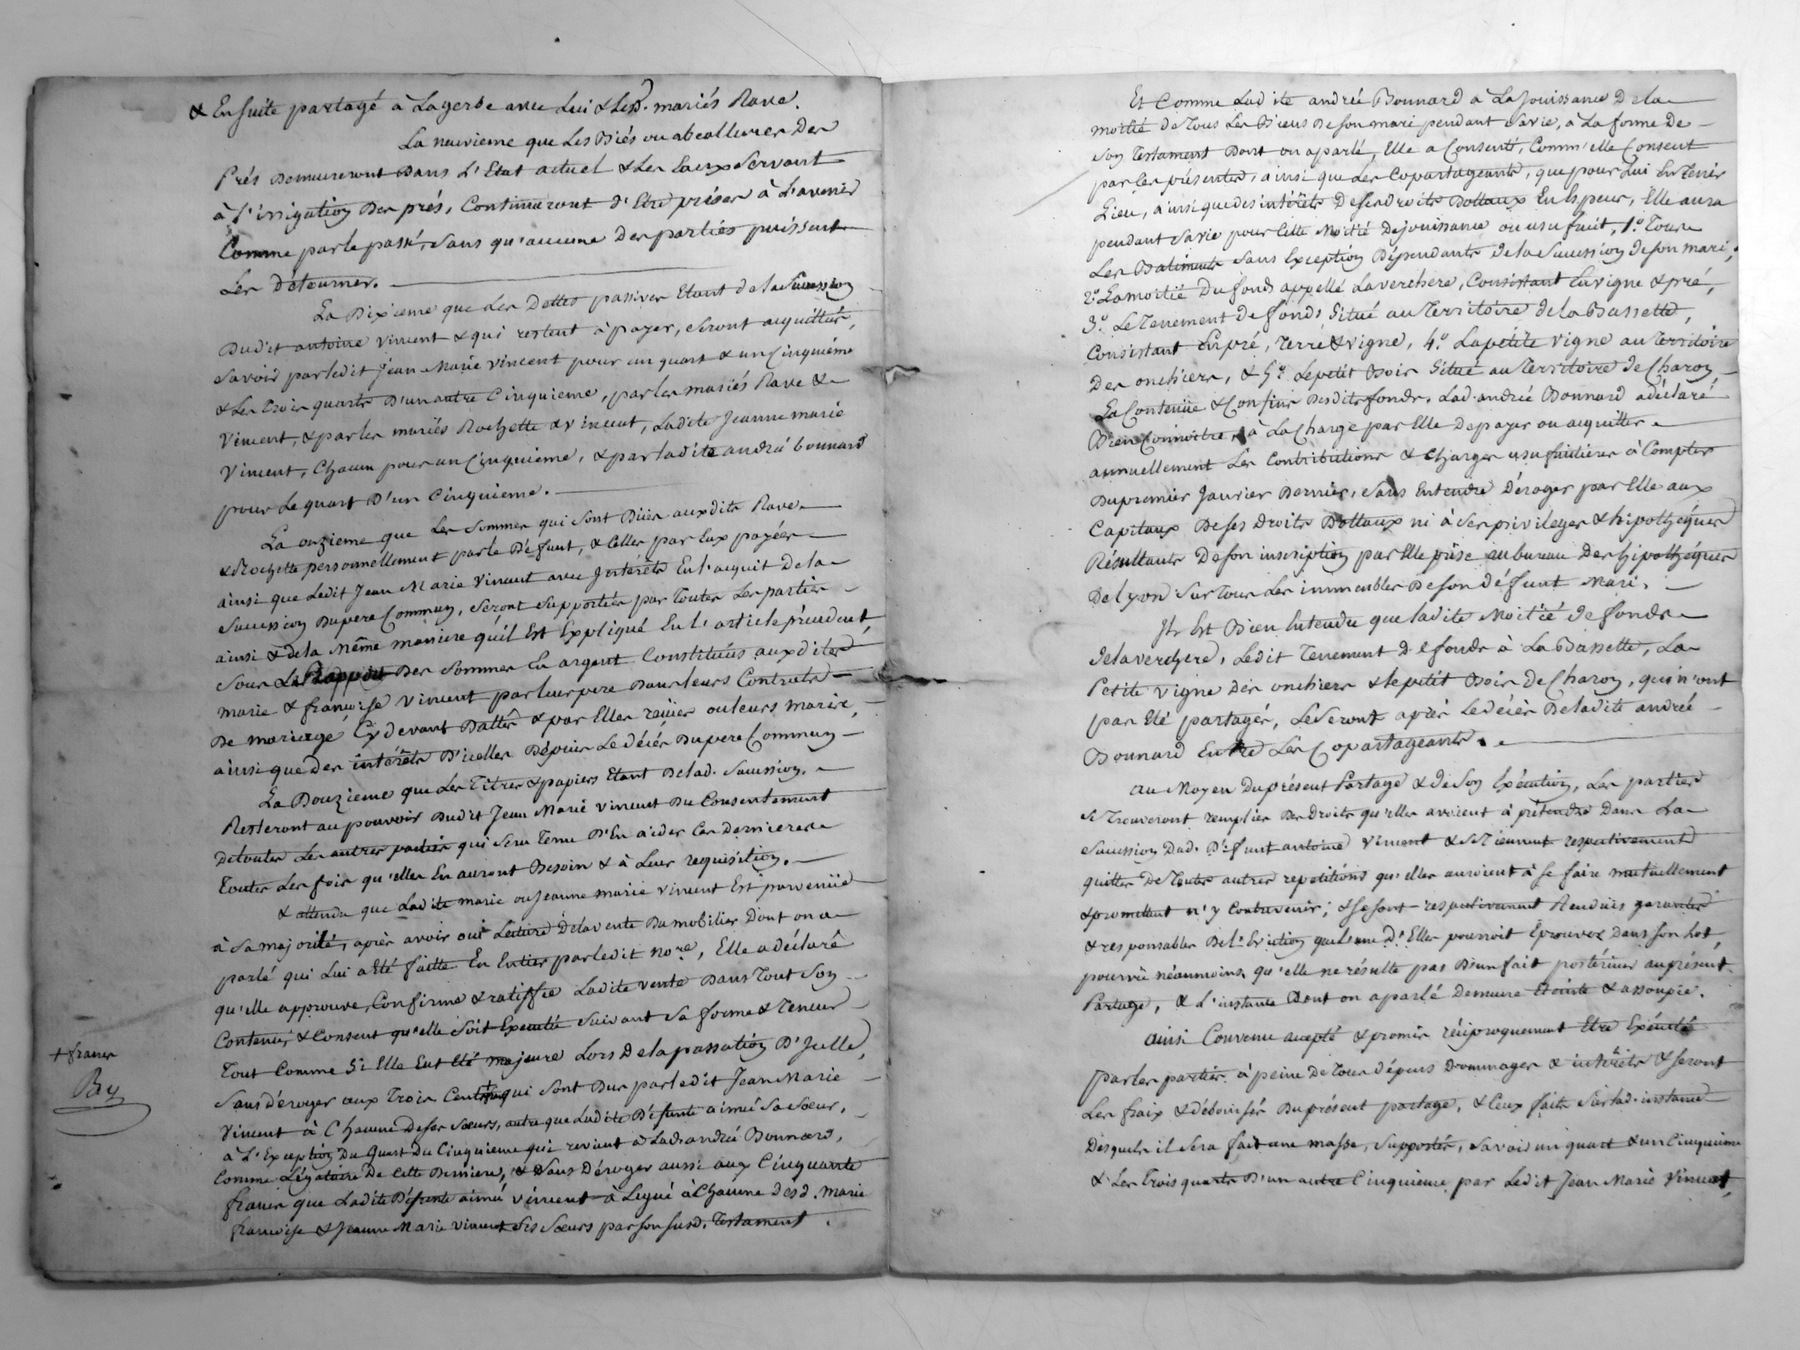 & Ensuite partagé à Lagerbe avec Lui & Lesd. mariés Rave.
La neuvieme que Les Biés ou abcallieures des
Prés Demeureront Dans L'Etat actuel & Les Eaux Servant
à l'irrigation Des prés, Continueront d'Etre prises à L'avenir
Comme par le passé, sans qu'aucune Des parties puissent
Les Détourner.
La Dixieme que Les Dettes passives Etant de la Succession
Dudit antoine vincent & qui restent à payer, seront acquittées,
Savoir par ledit Jean Marie vincent pour un quart & un Cinquiéme
& Les trois quarts D'un autre Cinquieme, par les mariés Rave &
Vincent, & par les mariés Rochette & vincent, Ladite Jeanne marie
Vincent, Chacun pour un Cinquieme, & par ladite andrée bonnard
pour Le quart D'un Cinquieme.
La onzieme que Les Sommes qui Sont Dües auxdits Rave
& Rochette personnellement par le Défunt, & Celles par Eux payées
ainsi que Ledit Jean Marie Vincent avec Jntérêts En l'acquit de la
Succession Du pere Commun, Seront Supportées par toutes Les parties
ainsi & de la Même maniere qu'il Est Expliqué En l'article précedent,
Sous Le Rapport Des Sommes En argent Constituées auxdites
marie & françoise Vincent par leur pere Dans leurs Contrats
De mariage Cy devant Dattés & par Elles reçües ou leurs maris,
ainsi que des intérêts D'icelles Depuis Le décés Du pere Commun
La Douzieme que Les Titres & papiers Etant De lad. Succession,
Resteront au pouvoir Dudit Jean Marie vincent Du Consentement
De toutes Les autres parties qui Sera tenu D'En aider Ces Dernieres
toutes Les fois qu'elles En auront Besoin & à Leur requisition.
& attendu que Ladite marie ou Jeanne marie vincent Est parvenüe
à Sa majorité, après avoir oui Lecture De la vente Du mobilier Dont on a
parlé qui Lui a Eté faitte En Entier par ledit nore, Elle a déclaré
qu'elle approuve, Confirme & ratiffie Ladite vente Dans tout Son
Contenu & Consent qu'elle Soit Executée Suivant Sa forme & Teneur
Tout Comme Si Elle Eut Eté majeure Lors De la passation D'Jcelle,
Sans déroger aux Trois Cent + qui sont Dus par ledit Jean Marie
Vincent à Chacune De ses Sœurs, autre que Ladite Défunte aimée Sa Sœur,
à L'Exception Du Quart Du Cinquieme qui revient à Lad. andrée Bonnard,
Comme Légataire De Cette Derniere, & Sans Déroger aussi aux Cinquante
francs que Ladite Défunte aimée vincent à Légué à Chacune desd. marie
françoise & Jeanne Marie vincent Ses Sœurs par Son Susd. Testament.
+ francs
Et Comme Ladite andrée Bonnard a La Jouissance De la
moitié de Tous Les Biens De son mari pendant sa vie, à La forme De
Son Testament Dont on a parlé, Elle a Consenti, Comm'elle Consent
par les présentes, ainsi que Les Copartageants, que pour Lui En Tenir
Lieu, ainsi que des intérêts De ses droits Dottaux En Espece, Elle aura
pendant Sa vie pour Cette Moitié De jouissance ou usufruit, 1.º Tous
Les Batiments Sans Exception Dépendants de la Succession de son mari,
2.º La moitié Du fond appellé La verchere, Consistant En vigne & pré,
3.º Le Tenement De fonds Situé au Territoire De la Bassette,
Consistant En pré, terre & vigne, 4.º La petite vigne au Territoire
Des onchiers, & 5.º Le petit Bois Situé au Territoire de Charoy
La Contenüe & Confins Desdits fonds, Lad. andrée Bonnard a déclaré
Bien Connoitre, à La Charge par Elle De payer ou acquitter
annuellement Les Contributions & Charges usufruitieres à Compter
Du premier Janvier Dernier, Sans Entendre Déroger par Elle aux
Capitaux De ses Droits Dottaux ni à Ses privileges & hipothéques
Résultants De son inscription par Elle prise au bureau Des hipothéques
De lyon Sur tous Les immeubles De son défunt Mari.
Jl Est Bien Entendu que ladite Moitié de fonds
De la verchere, Ledit Tenement De fonds à La Bassette, La
Petite vigne Des onchiers & le petit Bois de Charoy, qui n'ont
pas Eté partagés, Le Seront après Le décès De ladite andrée
Bonnard Entre Les Copartageants.
au Moyen Du présent Partage & de Son Exécution, Les parties
Se Trouveront remplies Des Droits qu'elles avoient à prétendre Dans La
Succession Dud. Défunt antoine Vincent & Se Tiennent respectivement
quittes De Toutes autres repetitions qu'elles auroient à se faire mutuellement
& promettent n'y Contrevenir; & se font respectivement Rendües garantes
& responsables De l'Eviction que L'une D'Elles pourroit Eprouver Dans son Lot,
pourvu néanmoins qu'elle ne résulte pas D'un fait postérieur au présent
Partage, & L'instance Dont on a parlé Demeure Eteinte & assoupie.
ainsi Convenu accepté & promis réciproquement Etre Exécuté
par les parties à peine De tous dépens Dommages & intérêts & seront
Les fraix & déboursés Du présent partage, & Ceux faits Sur lad. instance
Desquels il sera fait une masse, Supportés, Savoir un quart & un Cinquieme
& Les trois quarts D'un autre Cinquieme par Ledit Jean Marie Vincent,